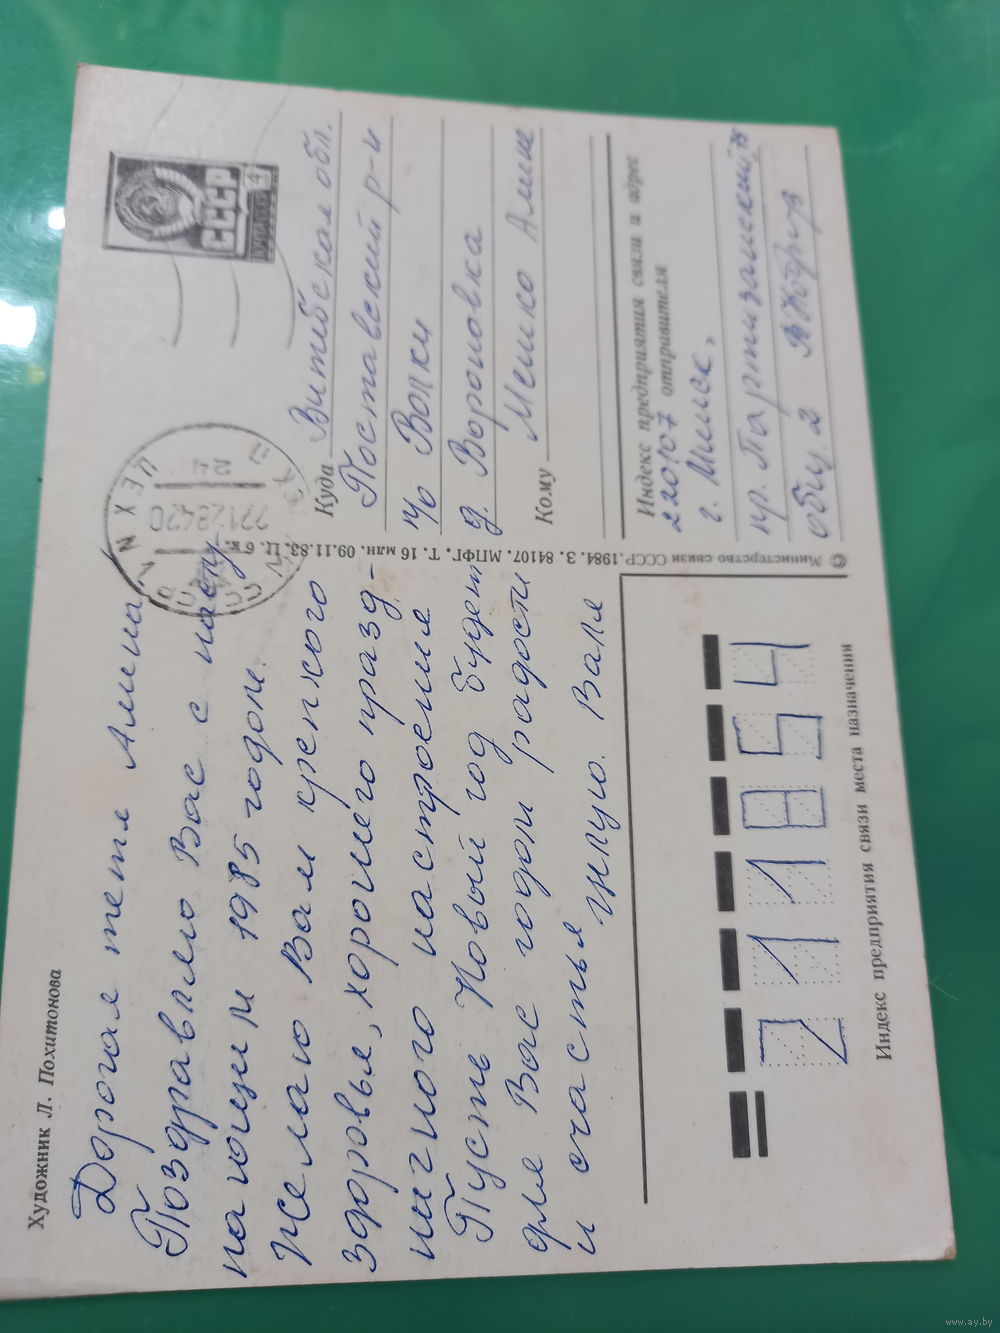 Художник Л. Похитонова
Дорогая тетя Алина
Поздравляю Вас с насту
пающим 1985 годом.
Желаю Вам крепкого
здоровья, хорошего празд-
ничного настроения
Пусть Новый год будет
для Вас годом радости
и счастья Целую. Валя
СССР
ПОЧТА
4
Куда Витебская обл.
Поставский р-н
п/о Волки
д. Вороновка
Кому Мешко Алине
Индекс предприятия связи и адрес
220107 отправителя
г. Минск,
пр. Партизанский
общ. 2
© Министерство связи СССР. 1984. З. 84107. МПФГ. Т. 16 млн. 09.11.83. Ц. 6 к.
211854
Индекс предприятия связи места назначения
www.ay.by